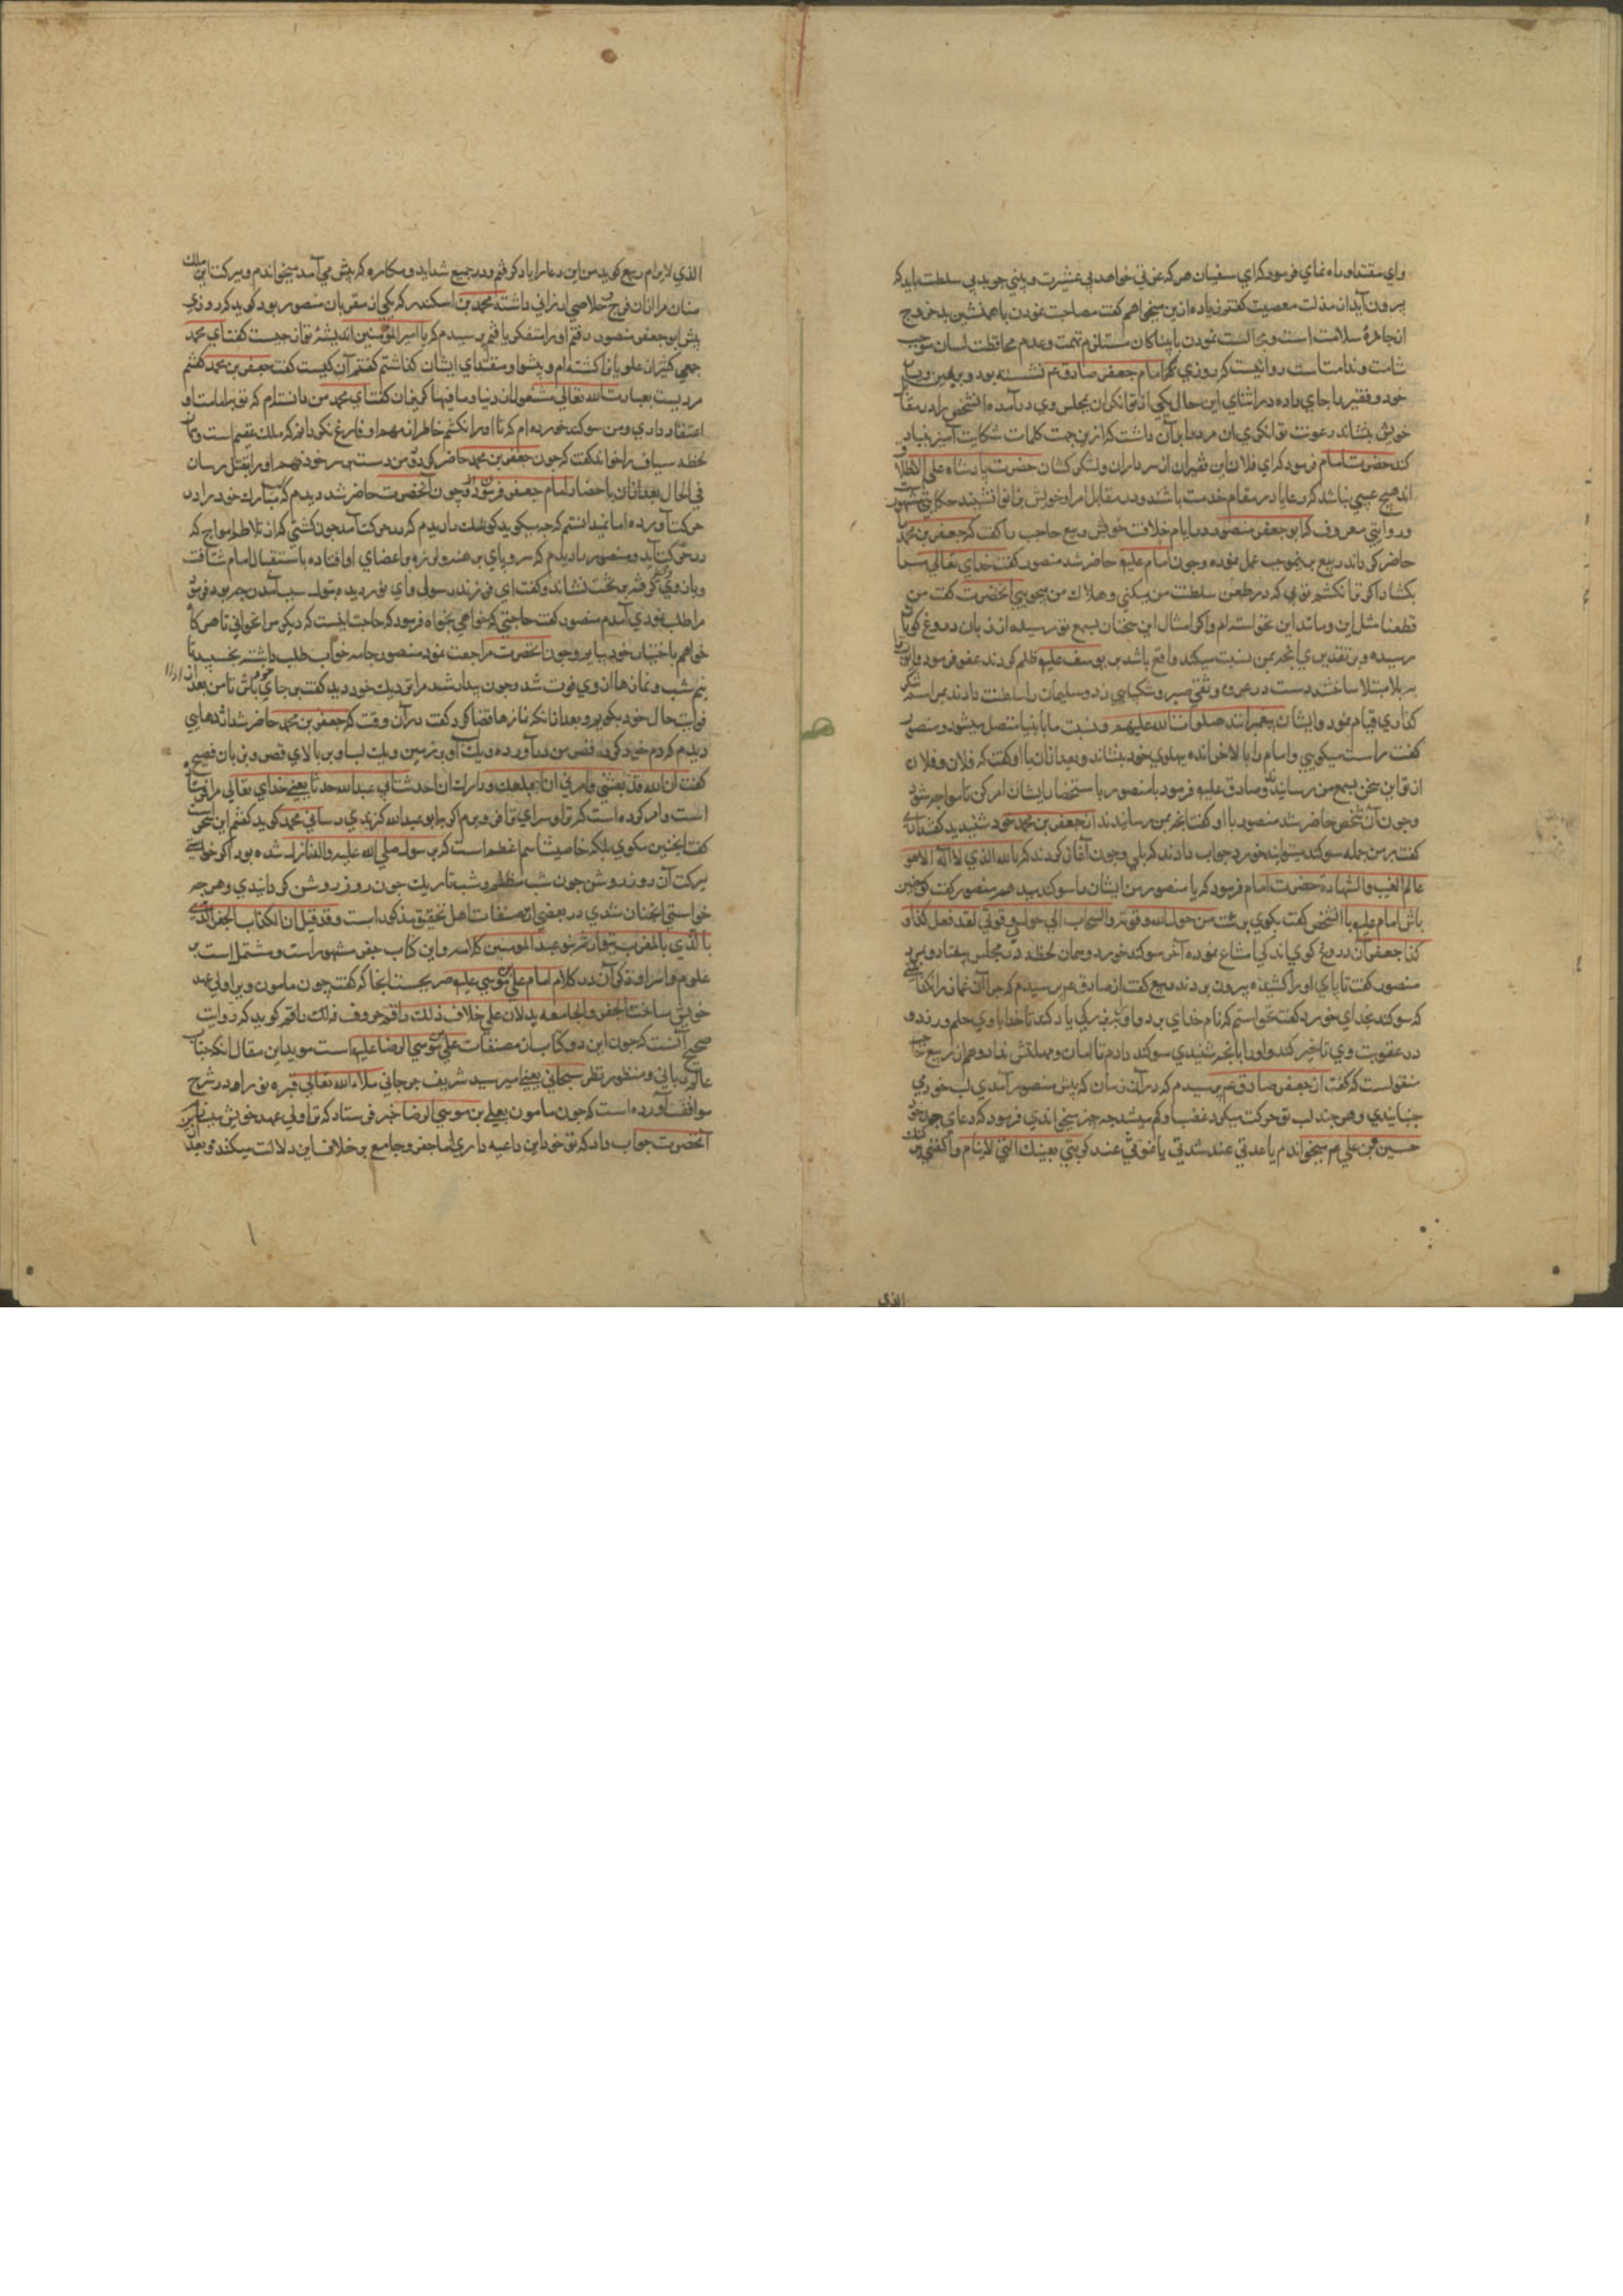 واي مقتدا و راه نماي فرمود كه اي سفيان هر كه عزتي خواهد بي عشيرت و هيبتي جويد بي سلطنت بايد كه
برون آيد از مذلت معصيت گفتم زياده ازين ميخواهم گفت مصاحبت نمودن با همنشين بد خروج
از جاده سلامت است و مجالست نمودن با بيباكان مستلزم تهمت و عدم محافظت لسان موجب
شامت و ندامت است روايتست كه روزي امام جعفر صادق عم نشسته بود و
خود و فقير را جاي داده در اثناي اين حال يكي از توانگران بمجلس وي در آمده آن شخص را در مقا
خويش بنشاند رعونت توانگري آن مرد را بر آن داشت كه ازين جهت كلمات شكايت آميز بنياد
كند حضرت امام فرمود كه اي فلان اين فقيران از سرداران و لشكر كشان حضرت پادشاه علي الاطلا
اند هيچ عيبي نباشد كه رعايا در مقام خدمت باشند و در مقابل امرا و خويش بزانو نشينند حكايتي مشهور
و روايتي معروف كه ابو جعفر منصور در ايام خلافت خويش ربيع حاجب را گفت كه جعفر بن محمد را
حاضر گرداند ربيع بر بموجب عمل نموده و چون امام عليه حاضر شد منصور گفت خداي تعالي مرا
بكشاد اگر ترا نكشم تويي كه در سلطنت من ميكني و هلاك من ميجويي آنحضرت گفت من
قطعا مثل اين و مانند اين نخواسته ام و اگر امثال اين سخنان بسمع تو رسيده از زبان دروغ گويان
رسيده و بر تقديري آنچه بمن نسبت ميكند واقع باشد بر يوسف عليه ظلم كردند عفو فرمود و ايوب را
به بلا مبتلا ساختند دست در عروه وثقي صبر و شكيبايي زد و سليمان را سلطنت دادند بمراسم شكر
گذاري قيام نمود و ايشان پيغمبرانند صلوات الله عليهم و نسبت ما بانبيا متصل ميشود و منصور
گفت راست ميگويي و امام را بالا خوانده پهلوي خود بنشاند و بعد از آن با او گفت كه فلان و فلان
از تو اين سخن بسمع من رسانيده اند صادق عليه فرمود با منصور با ستحضار ايشان امر كن تا مواجه شود
و چون آن شخص حاضر شد منصور با او گفت آنچه بمن رسانيدند از جعفر بن محمد خود شنيديد گفت آري
گفت برين جمله سوگند ميتواني خورد جواب دادند كه بلي و چون آغاز كردند كه بالله الذي لا اله الا هو
عالم الغيب و الشهادة حضرت امام فرمود كه يا منصور من ايشان را سوگند بدهم منصور گفت كه چنين
باش امام عليه با آن شخص گفت بگوي برئت من حول الله و قوته و التجات الي حولي و قوتي لقد فعل كذا و
كذا جعفر آن دروغ گوي اندكي امتناع نموده آخر سوگند خورد و همان لحظه در مجلس بيفتاد و بمرد
منصور گفت تا پاي او را كشيده بيرون بردند ربيع گفت از صادق عم پرسيدم كه چرا آن زمان
كه سوگند بخداي خورد گفت نخواستم كه نام خداي برد و او را ببزرگي ياد كند تا خدا با وي حلم ورزد و
در عقوبت وي تاخير كند و او را بآنچه شنيدي سوگند دادم تا امان و مهلتش نداد و هم از ربيع
منقولست كه گفت از جعفر صادق عم پرسيدم كه در آن زمان كه پيش منصور آمدي لب خود مي
جنبانيدي و هر چند لب تو حركت ميكرد غضب او كم ميشد چه چيز ميخواندي فرمود كه دعاي جد خود
حسين بن علي عم ميخواندم يا عدتي عند شدتي يا غوثي عند كربتي بعينك التي لا تنام و اكنفني بركنك
الذي
الذي لا يرام ربيع گويد من اين دعا را ياد گرفتم و در جميع شدايد و مكاره كه پيش مي آمد ميخواندم و ببركت اين ملك
منان مرا از آن فرج خلاصي ارزاني داشته محمد بن اسكندر كه يكي از مقربان منصور بود گويد كه روزي
پيش ابو جعفر منصور رفتم او را متفكر يافتم پرسيدم كه يا امير المؤمنين انديشه تو از چيست گفت اي محمد
جمعي كثير از علويان را كشته ام و پيشوا و مقتداي ايشان گذاشتم گفتم آن كيست گفت جعفر بن محمد گفتم
مرديست بعبادت الله تعالي مشغول از دنيا و ما فيها گريزان گفت اي محمد من دانسته ام كه تو بامامت او
اعتقاد داري و من سوگند خورده ام كه تا او را نكشم خاطر از مهم او فارغ نگردانم كه ملك عقيم است و آن
لحظه سياف را خواند گفت كه چون جعفر بن محمد حاضر گردد من دست بر سر خود نهم او را بقتل رسان
في الحال بعد از آن باحضار امام جعفر فرمود و چون آنحضرت حاضر شد ديدم كه لب مبارك خود را در
حركت آورده اما نميدانستم كه چه ميگويد كوشك را ديدم كه در حركت آمد چون كشتي كه از تلاطم امواج كه
در حركت آيد و منصور را ديدم كه سر و پاي برهنه و لرزه بر اعضاي او افتاده باستقبال امام شتافت
و بازوي گرفته بر تخت نشاند و گفت اي فرزند رسول سبب آمدن چه بود فرمود تو
مرا طلب نمودي آمدم منصور گفت حاجتي كه خواهي بخواه فرمود كه حاجت اينست كه ديگر مرا نخواني تا هر گاه
خواهم باختيار خود بيايم و چون آنحضرت مراجعت نمود منصور جامه خواب طلب داشته بخسبيد تا
نيم شب و نمازها از وي فوت شد و چون بيدار شد مرا نزديك خود ديد گفت بر جاي باش تا من بعد از اداء
فوايت حال خود بگويم و بعد از آنكه نمازها قضا كرد گفت در آن وقت كه جعفر بن محمد حاضر شد اژدهايي
ديدم كه دم خود گرد قصر من در آورده و يك لب او بر زمين و يك لب او بر بالاي قصر و بزبان فصيح
گفت ان الله قد بعثني و امرني ان ابتلعك و دارك ان احدثت بابي عبد الله حدثا يعني خداي تعالي مرا فرستاده
است و امر كرده است كه ترا و سراي ترا فرو برم اگر بابو عبد الله گزندي رساني محمد گويد گفتم اين سحر است
گفت اينچنين مگوي بلكه خاصيت اسم اعظم است كه بر رسول صلي الله عليه و اله نازل شده بود اگر خواستي
ببركت آن روز روشن چون شب مظلم و شب تاريك چون روز روشن گردانيدي و هر چه
خواستي آنچنان شدي در بعضي از مصنفات اهل تحقيق مذكور است و قد قيل ان الكتاب الجفر الذي
بالمغرب يتوارثه بنو عبد المومن كلامه و اين كتاب جفر مشهور است و مشتمل است بر
علوم و اسرار و ذكر آن در كلام امام علي موسي عليه صريحست آنجا كه گفت چون مامون ويرا ولي عهد
خويش ساخت الجفر و الجامعه يدلان علي خلاف ذلك راقم حروف گويد كه روايت
صحيح آنست كه چون اين دو كتاب از مصنفات علي موسي الرضا عليه است مويد اين مقال آنكه جناب
عالم رباني و منظور نظر سبحاني يعني امير سيد شريف جرجاني ملاء الله تعالي قبره نورا در شرح
مواقف آورده است كه چون مامون بعلي بن موسي الرضا خبر فرستاد كه ترا ولي عهد خويش
آنحضرت جواب داد كه تو خود اين داعيه داري اما جفر و جامع بر خلاف اين دلالت ميكنند و بعد